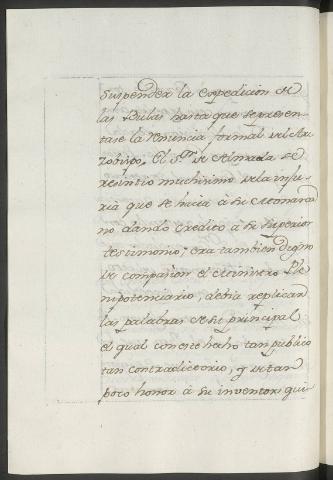 suspender la expedicion de
las Bulas hasta que se presen-
tase la renuncia formal del Ar-
zobispo. El Sor. de Almada se
resintió muchisimo de la inju-
ria que se hacia à su Monarca
no dando credito à su superior
testimonio; era tambien digno
de compasion el Ministro Ple-
nipotenciario, debia replicar
las palabras de su principal
el qual con este hecho tan publico
tan contradictorio, y de tan
poco honor à su inventor qui-